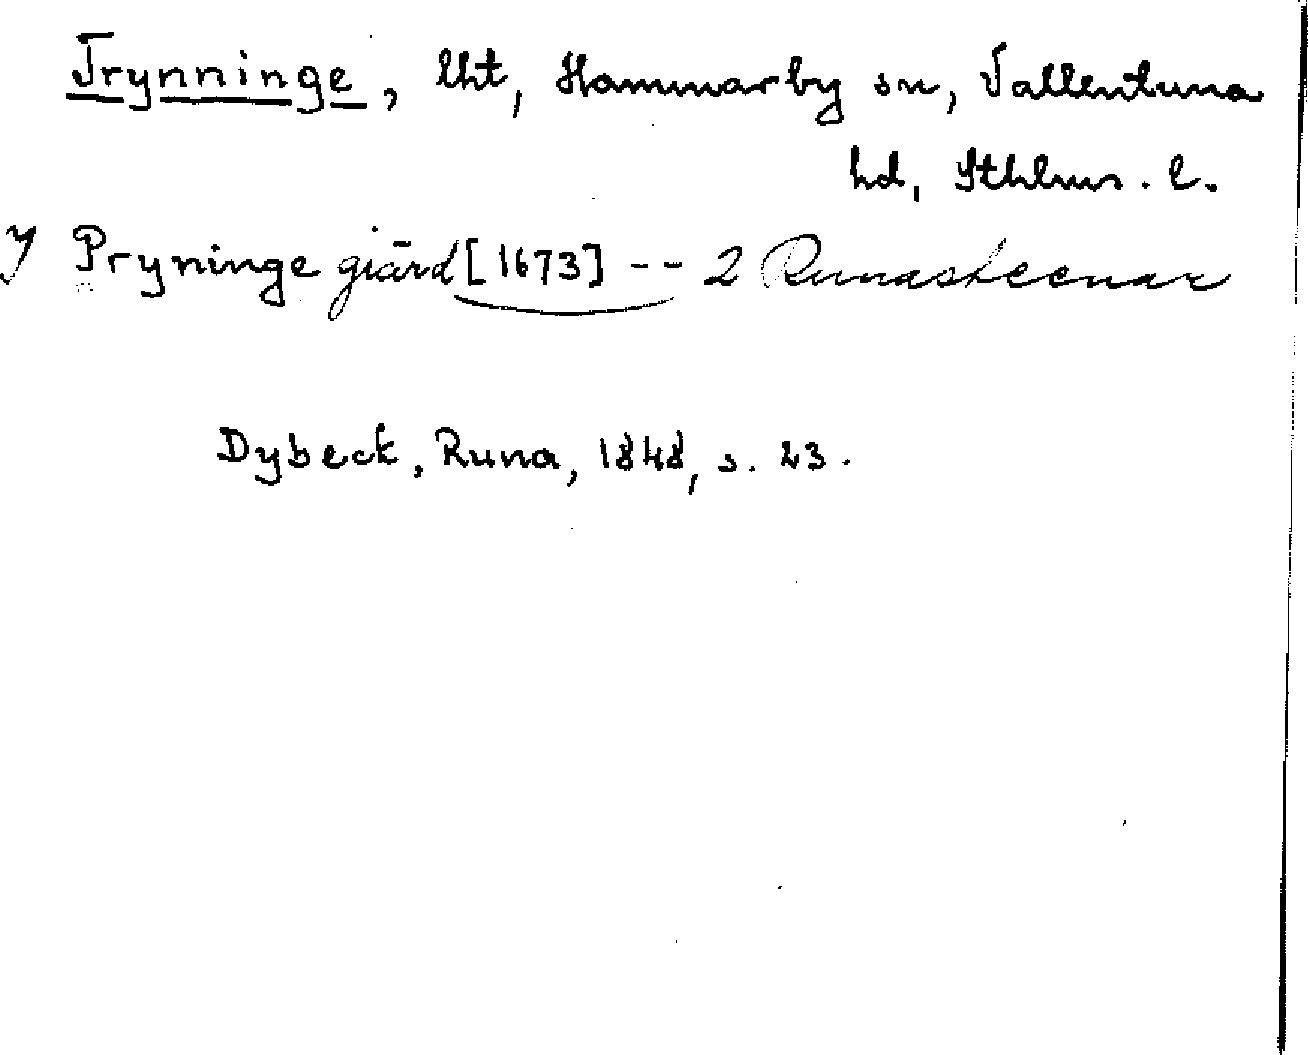 Trynninge, lht, Hammarby sn, Vallentuna
hd, Sthlms. l.
J Pryninge giärd [1673] -- 2 Runasteenar
Dybeck, Runa, 1848, s. 23.